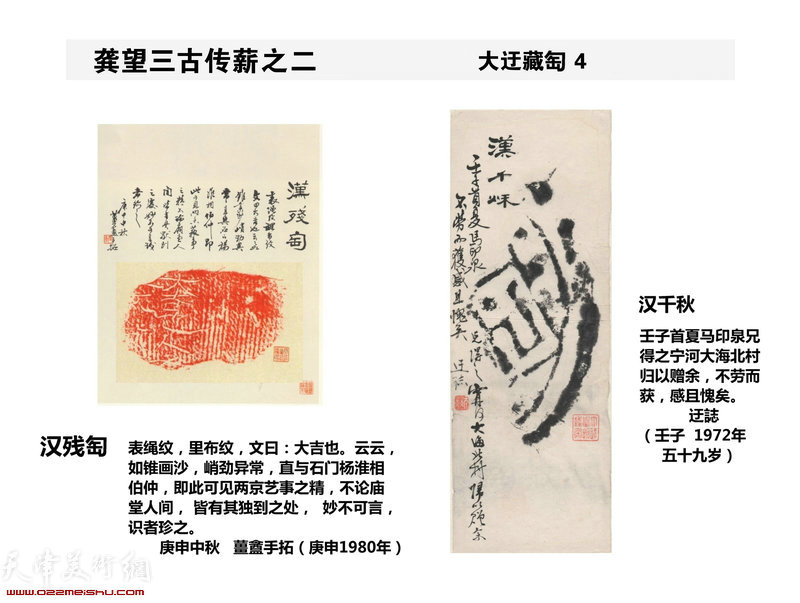 龚望三古传薪之二
大迂藏匋 4
漢殘匋
庚申中秋
漢千秌
壬子首夏馬印泉
兄得之寧河大海北村歸以贈余
不勞而獲感且愧矣
迂誌
汉千秋
壬子首夏马印泉兄
得之宁河大海北村
归以赠余，不劳而
获，感且愧矣。
迂誌
（壬子 1972年
五十九岁）
汉残匋
表绳纹，里布纹，文曰：大吉也。云云，
如锥画沙，峭劲异常，直与石门杨淮相
伯仲，即此可见两京艺事之精，不论庙
堂人间， 皆有其独到之处， 妙不可言，
识者珍之。
庚申中秋 薑盦手拓（庚申1980年）
天津美术網
www.022meishu.com